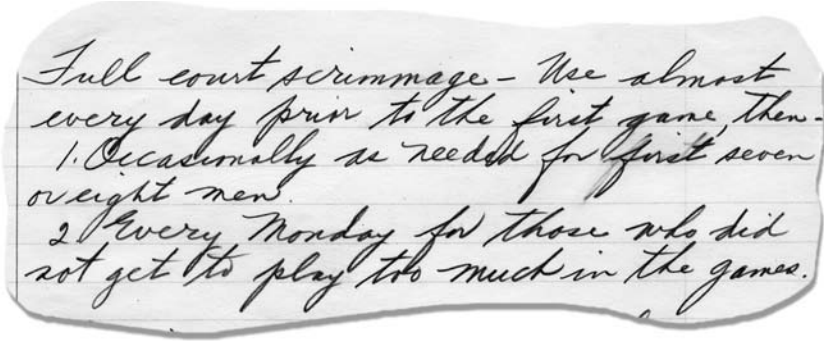 Full court scrimmage - Use almost
every day prior to the first game, then -
1. Occasionally as needed for first seven
or eight men.
2 Every Monday for those who did
not get to play too much in the games.